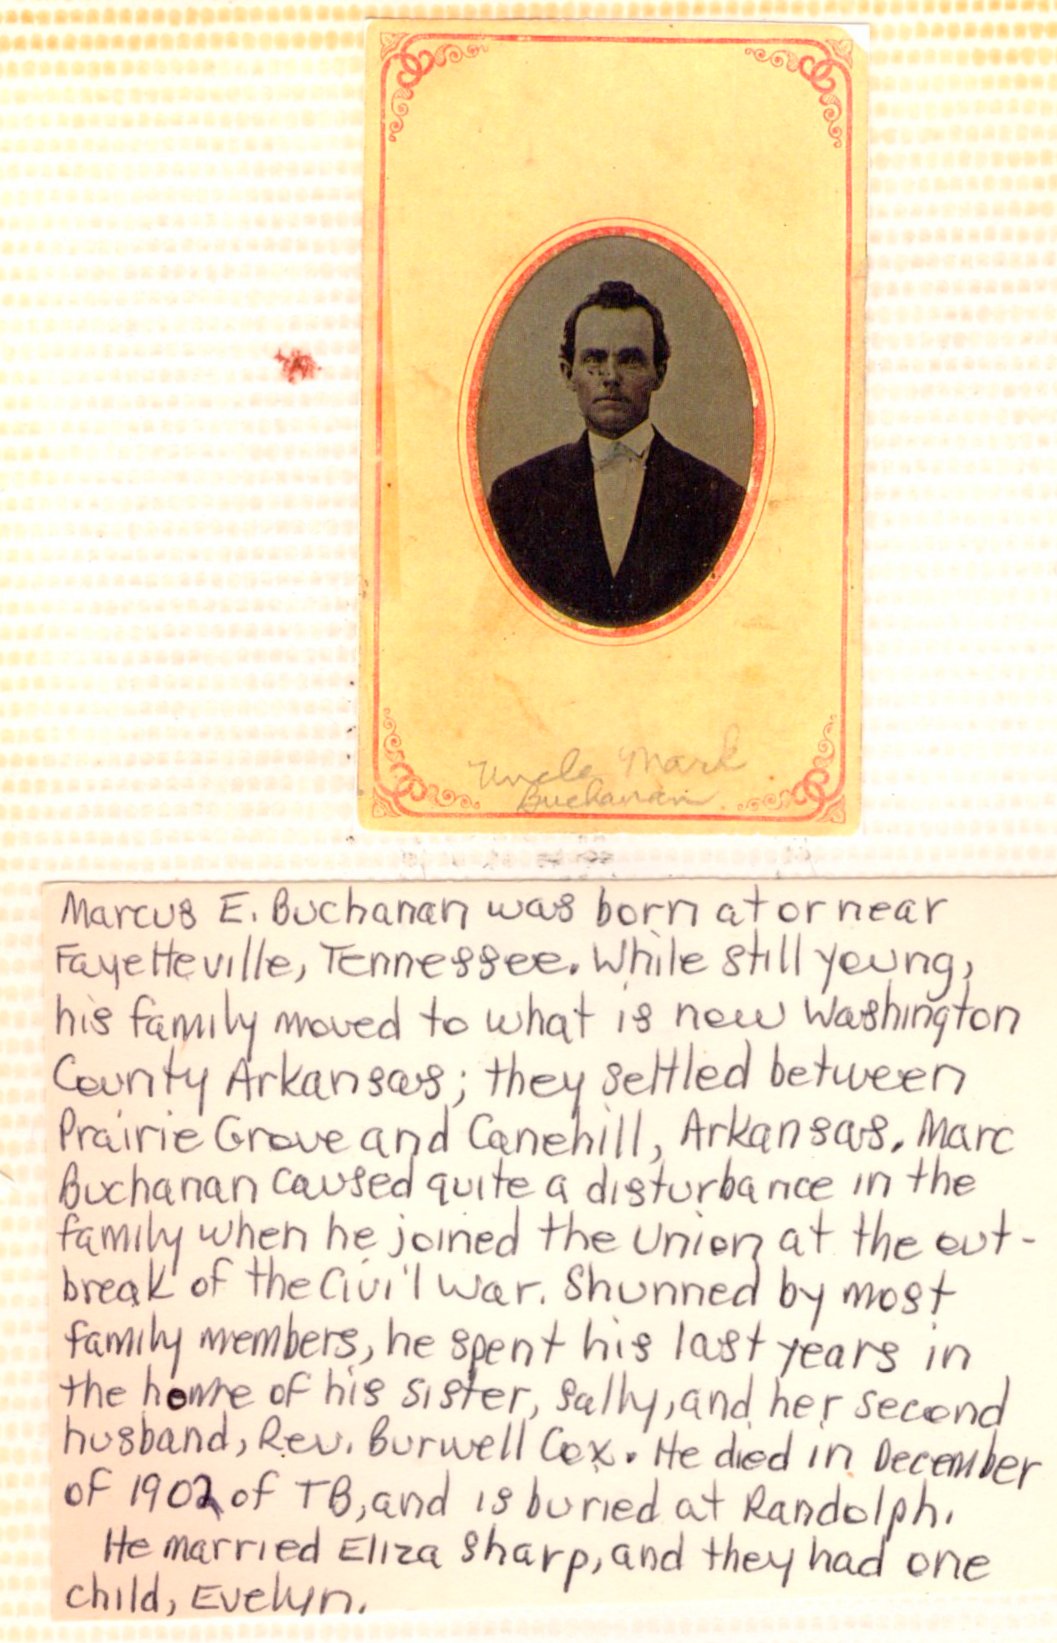 Uncle Mark
Buchanan
Marcus E. Buchanan was born at or near
Fayetteville, Tennessee. While still young,
his family moved to what is now Washington
County Arkansas; they settled between
Prairie Grove and Canehill, Arkansas. Marc
Buchanan caused quite a disturbance in the
family when he joined the Union at the out-
break of the Civil War. Shunned by most
family members, he spent his last years in
the home of his sister, Sally, and her second
husband, Rev. Burwell Cox. He died in December
of 1902 of TB, and is buried at Randolph.
He married Eliza Sharp, and they had one
child, Evelyn.